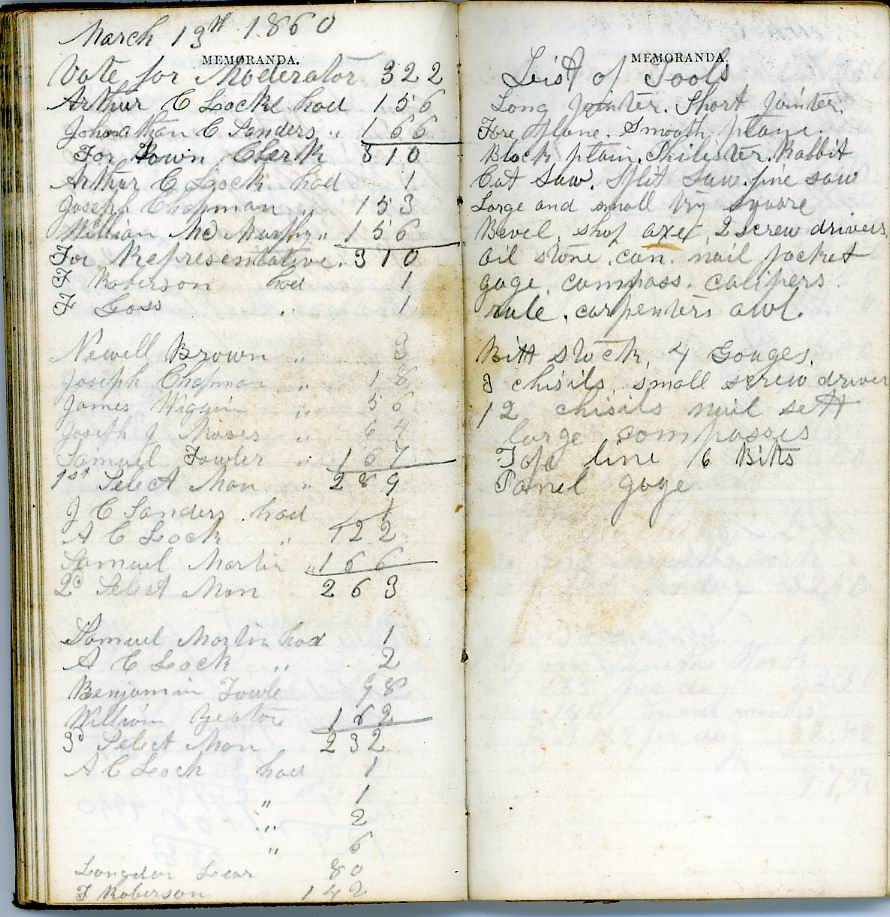 March 13th 1860
MEMORANDA.
Vote for Moderator 322
Arthur C Locke had 156
Johnathan C Sanders " 166
For Town Clerk 310
Arthur C Lock had 1
Joseph Chapman " 153
William Mc Murphy " 156
For Representative. 310
F Roberson had 1
F Goss " 1
Newell Brown " 3
Joseph Chapman " 18
James Wiggin " 56
Joseph J Moses " 64
Samuel Fowler " 167
1st Select Man " 289
J C Sanders had 1
A C Lock " 122
Samuel Martin " 166
2d Select Man 263
Samuel Martin had 1
A C Lock " 2
Benjamin Fowle 98
William Yeaton 162
3d Select Man 232
A C Lock had 1
" 1
" 2
" 6
Longdon Lear 80
F Roberson 142
MEMORANDA.
List of Tools
Long jointer. Short jointer.
Fore plane. Smooth plane.
Block plain. Philister. Rabbit
Cut Saw. Split Saw. fine saw
Large and small try square
Bevel, shop axe, 2 screw drivers
oil stone. can. nail pocket
gage. compass. calipers
rule. carpenters awl.
Bitt stock, 4 Gouges,
3 chisils, small screw driver
12 chisils nail sett
large compasses
line 6 Bitts
Panel gage